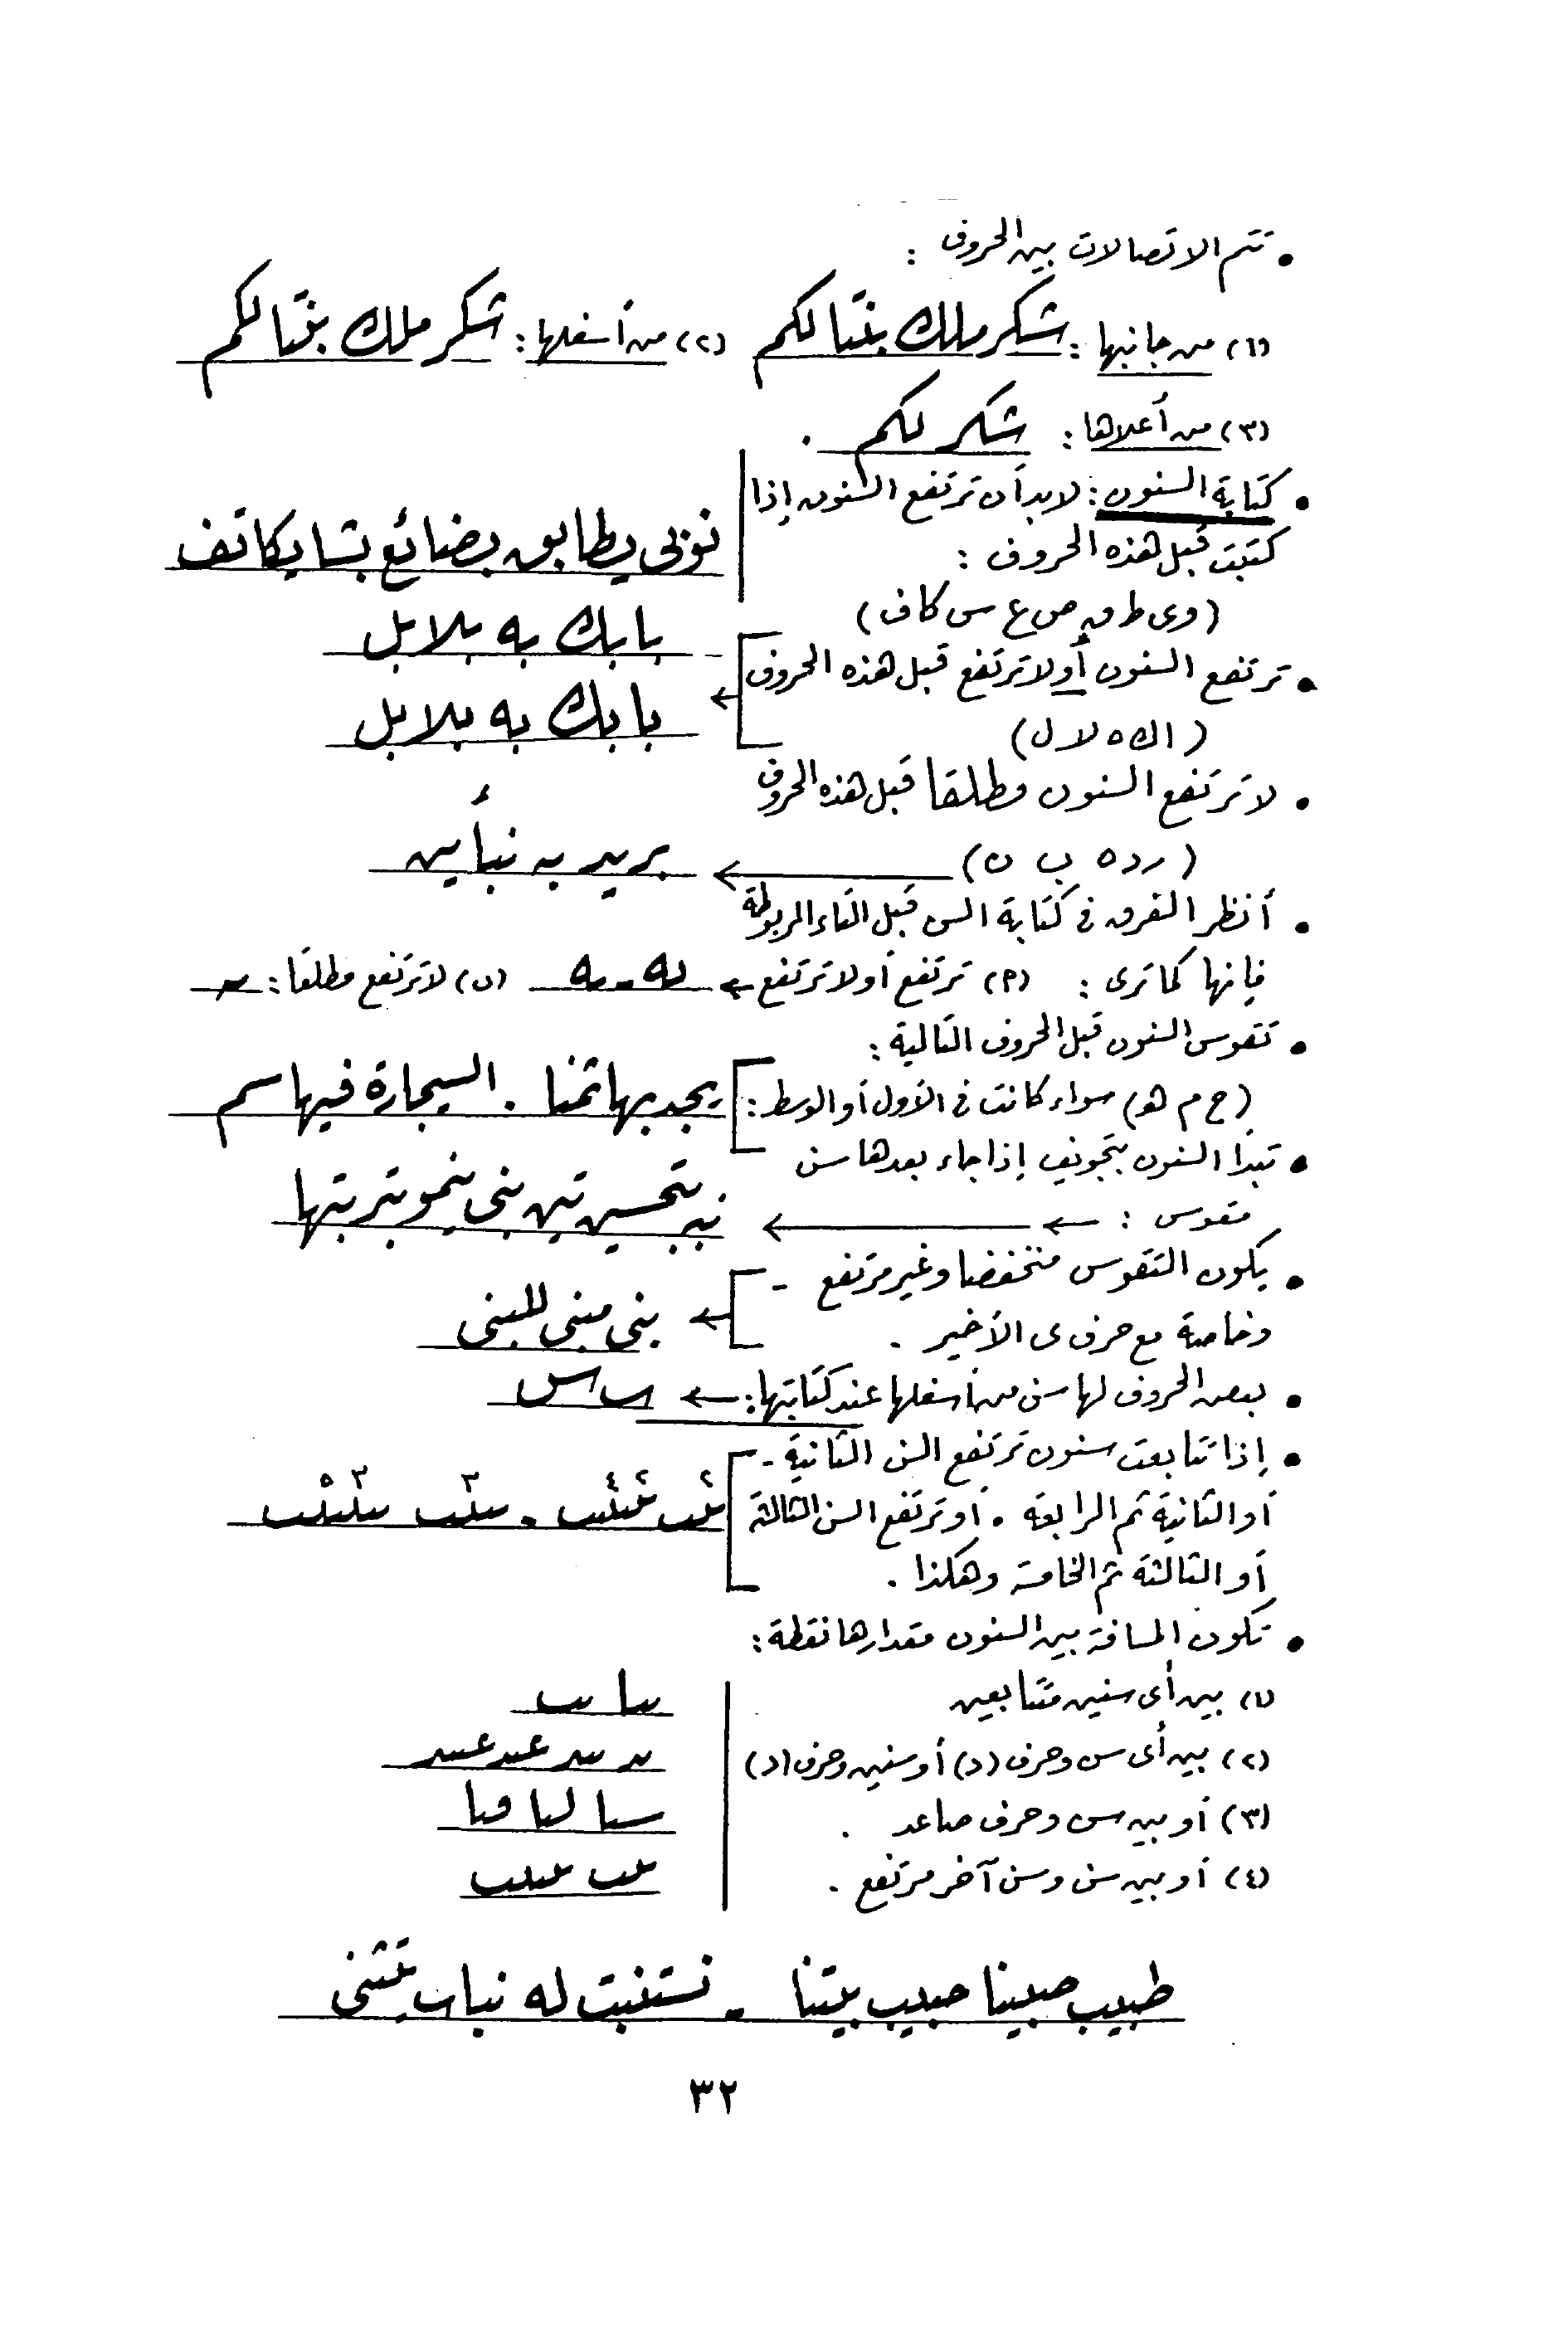 • تتم الاتصالات بين الحروف :
(١) من جانبها : شكر ملك بقتالكم (٢) من أسفلها : شكر ملك بقتالكم
(٣) من أعلاها : شكر لكم .
• كتابة السنون : لابد أن ترتفع السنون إذا
كتبت قبل هذه الحروف :
(و ى ط ق ص ع س كاف)
نوبى يطابق بضائع بشا يكاتف
• ترتفع السنون أو لا ترتفع قبل هذه الحروف
(ا ك ه لا ل)
بابك به بلابل
← بابك به بلابل
• لا ترتفع السنون مطلقا قبل هذه الحروف
(ر د ه ب ن) ← بريد به نبأ ين
• أنظر الفرق فى كتابة السن قبل التاء المربوطة
فإنها كما ترى : (٢) ترتفع أو لا ترتفع ← (ب) لا ترتفع مطلقا :
• تتقوس السنون قبل الحروف التالية :
(ح م هـ) سواء كانت فى الأول أو الوسط : يجد بها ثمنا . السيجارة فيها سم
• تبدأ السنون بتجويف إذا جاء بعدها سن
مقوس : ← ← تحسين تين بنى ينمو بتربتها
• يكون التقوس منخفضا وغير مرتفع -
وخاصة مع حرف ى الأخير .
← بنى مبنى للبنى
• بعض الحروف لها سن من أسفلها عند كتابتها : ←
• إذا تتابعت سنون ترتفع السن الثانية -
أو الثانية ثم الرابعة . أو ترتفع السن الثالثة
أو الثالثة ثم الخامسة وهكذا .
٢ ٢ ٤ ٣ ٣ ٥
• تكون المسافة بين السنون مقدارها نقطة :
(١) بين أى سنين متتابعين
(٢) بين أى سن وحرف (د) أو سنين وحرف (د)
(٣) أو بين سن وحرف صاعد .
(٤) أو بين سن وسن آخر مرتفع .
طبيب صبينا حبيب بيتنا - نستنبت له نبات
٣٢